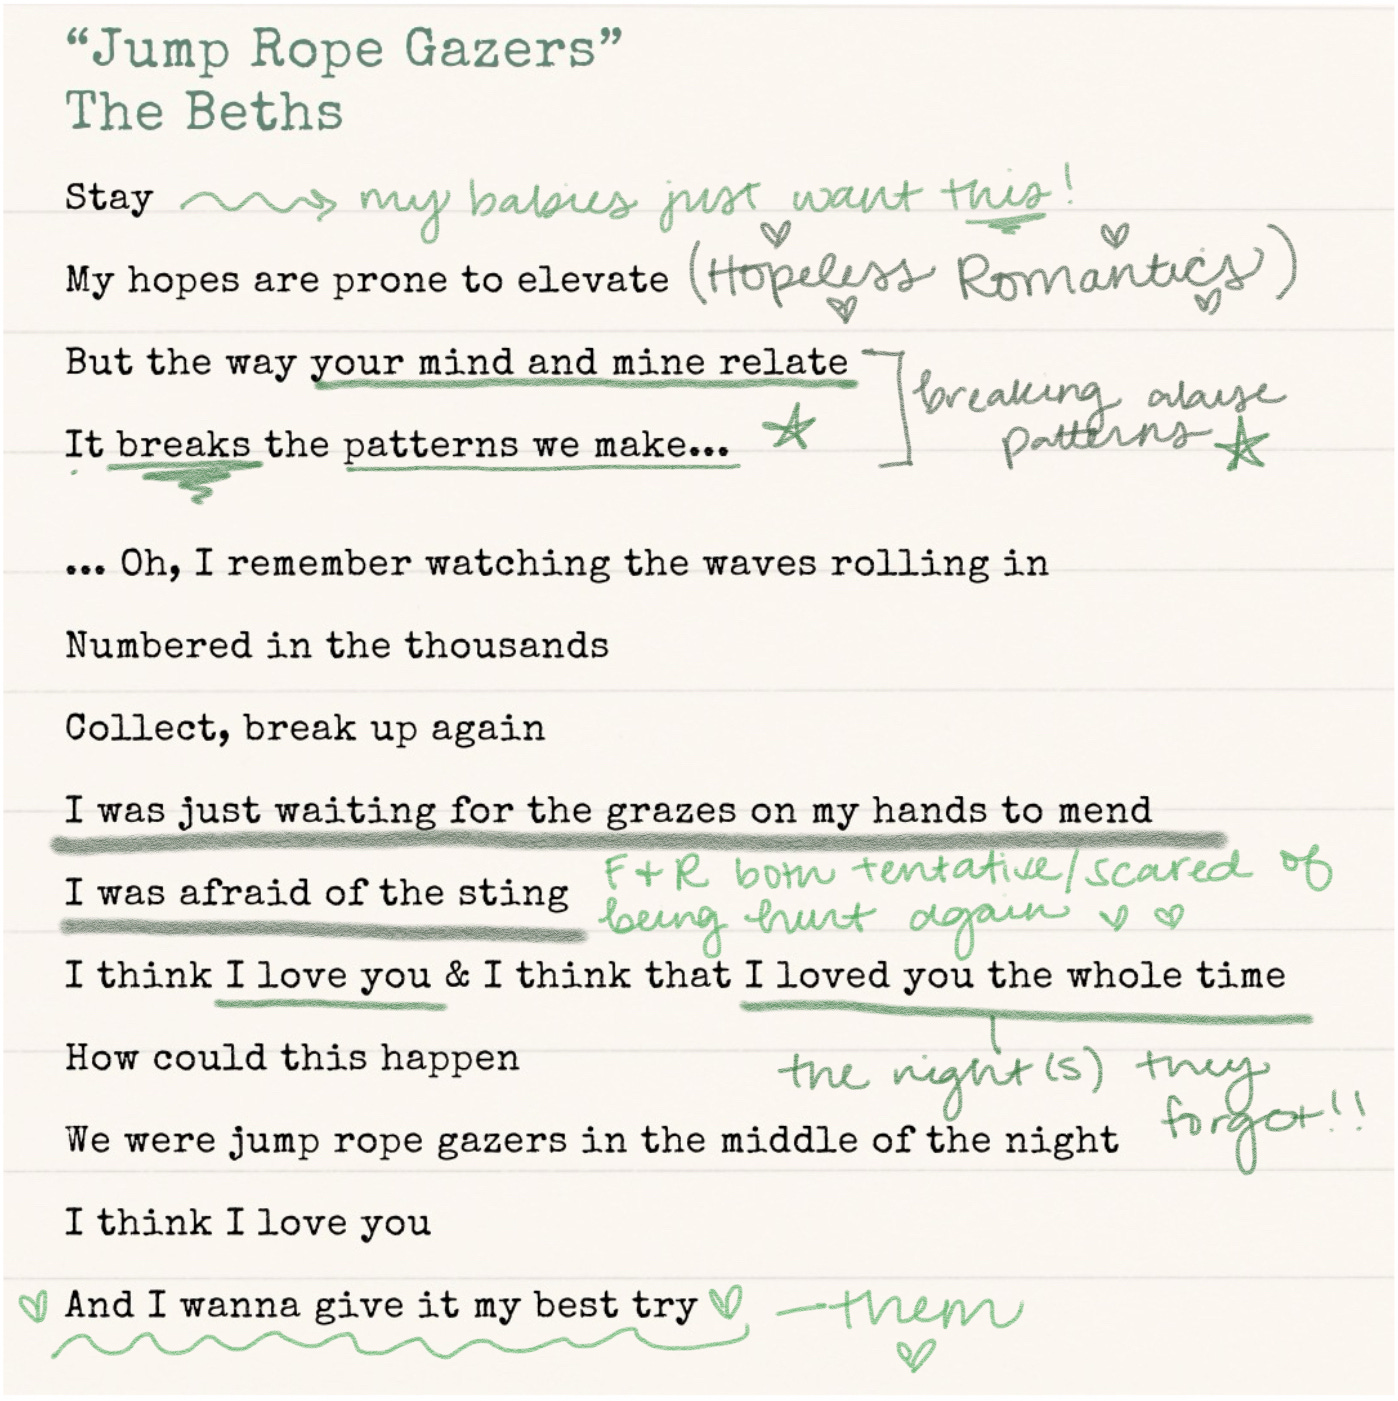 “Jump Rope Gazers”
The Beths
Stay my babies just want this!
My hopes are prone to elevate (Hopeless Romantics)
But the way your mind and mine relate
breaking abuse
It breaks the patterns we make...
patterns
... Oh, I remember watching the waves rolling in
Numbered in the thousands
Collect, break up again
I was just waiting for the grazes on my hands to mend
I was afraid of the sting
F+R both tentative/scared of
being hurt again
I think I love you & I think that I loved you the whole time
How could this happen
the night(s) they
forgot!!
We were jump rope gazers in the middle of the night
I think I love you
And I wanna give it my best try — them